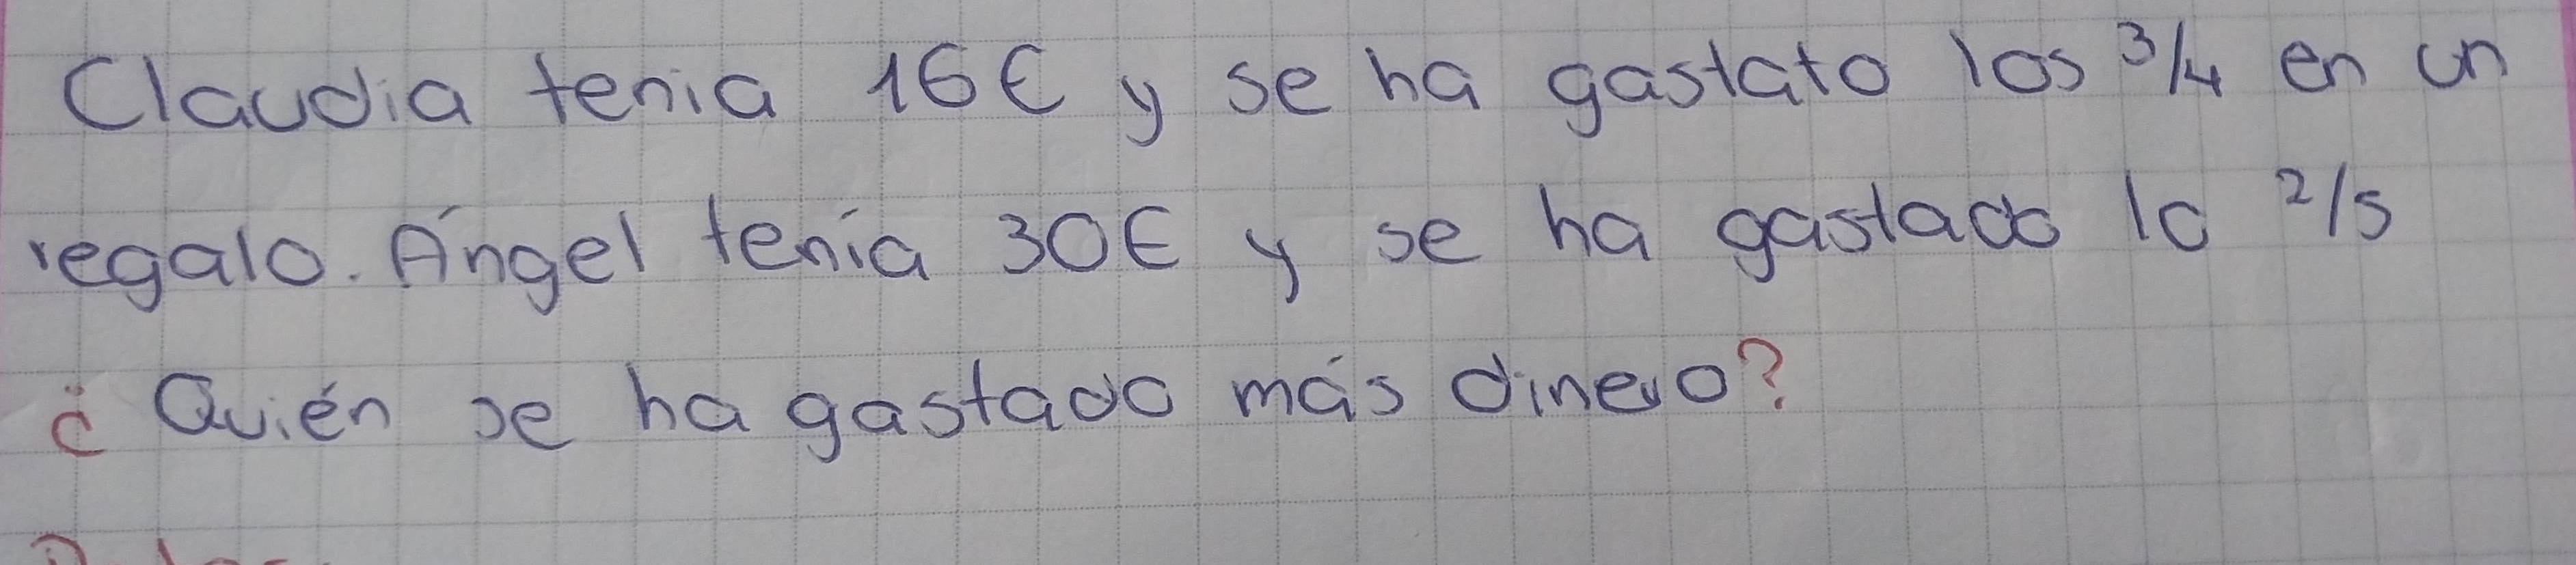 Claudia tenia 16€ y se ha gastato los 3/4 en un
regalo. Ángel tenía 30€ y se ha gastado lo 2/5
¿Quién se ha gastado más dinero?